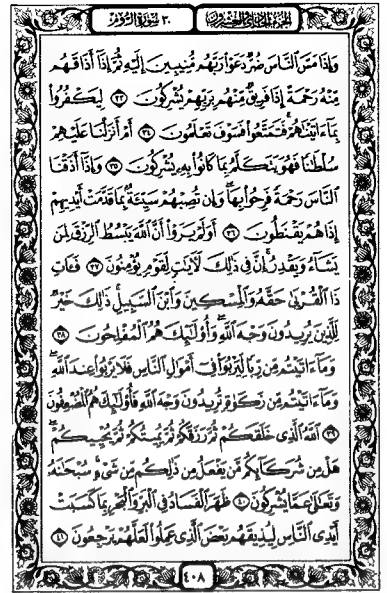 الجزء الحادي والعشرون ٣٠ سورة الروم
وَإِذَا مَسَّ ٱلنَّاسَ ضُرٌّ دَعَوْاْ رَبَّهُم مُّنِيبِينَ إِلَيْهِ ثُمَّ إِذَآ أَذَاقَهُم
مِّنْهُ رَحْمَةً إِذَا فَرِيقٌ مِّنْهُم بِرَبِّهِمْ يُشْرِكُونَ ٣٣ لِيَكْفُرُواْ
بِمَآ ءَاتَيْنَٰهُمْ ۚ فَتَمَتَّعُواْ فَسَوْفَ تَعْلَمُونَ ٣٤ أَمْ أَنزَلْنَا عَلَيْهِمْ
سُلْطَٰنًا فَهُوَ يَتَكَلَّمُ بِمَا كَانُواْ بِهِۦ يُشْرِكُونَ ٣٥ وَإِذَآ أَذَقْنَا
ٱلنَّاسَ رَحْمَةً فَرِحُواْ بِهَا ۖ وَإِن تُصِبْهُمْ سَيِّئَةٌۢ بِمَا قَدَّمَتْ أَيْدِيهِمْ
إِذَا هُمْ يَقْنَطُونَ ٣٦ أَوَلَمْ يَرَوْاْ أَنَّ ٱللَّهَ يَبْسُطُ ٱلرِّزْقَ لِمَن
يَشَآءُ وَيَقْدِرُ ۚ إِنَّ فِى ذَٰلِكَ لَـَٔايَٰتٍ لِّقَوْمٍ يُؤْمِنُونَ ٣٧ فَـَٔاتِ
ذَا ٱلْقُرْبَىٰ حَقَّهُۥ وَٱلْمِسْكِينَ وَٱبْنَ ٱلسَّبِيلِ ۚ ذَٰلِكَ خَيْرٌ
لِّلَّذِينَ يُرِيدُونَ وَجْهَ ٱللَّهِ ۖ وَأُوْلَٰٓئِكَ هُمُ ٱلْمُفْلِحُونَ ٣٨
وَمَآ ءَاتَيْتُم مِّن رِّبًا لِّيَرْبُوَاْ فِىٓ أَمْوَٰلِ ٱلنَّاسِ فَلَا يَرْبُواْ عِندَ ٱللَّهِ ۖ
وَمَآ ءَاتَيْتُم مِّن زَكَوٰةٍ تُرِيدُونَ وَجْهَ ٱللَّهِ فَأُوْلَٰٓئِكَ هُمُ ٱلْمُضْعِفُونَ
٣٩ ٱللَّهُ ٱلَّذِى خَلَقَكُمْ ثُمَّ رَزَقَكُمْ ثُمَّ يُمِيتُكُمْ ثُمَّ يُحْيِيكُمْ ۖ
هَلْ مِن شُرَكَآئِكُم مَّن يَفْعَلُ مِن ذَٰلِكُم مِّن شَىْءٍ ۚ سُبْحَٰنَهُۥ
وَتَعَٰلَىٰ عَمَّا يُشْرِكُونَ ٤٠ ظَهَرَ ٱلْفَسَادُ فِى ٱلْبَرِّ وَٱلْبَحْرِ بِمَا كَسَبَتْ
أَيْدِى ٱلنَّاسِ لِيُذِيقَهُم بَعْضَ ٱلَّذِى عَمِلُواْ لَعَلَّهُمْ يَرْجِعُونَ ٤١
٤٠٨